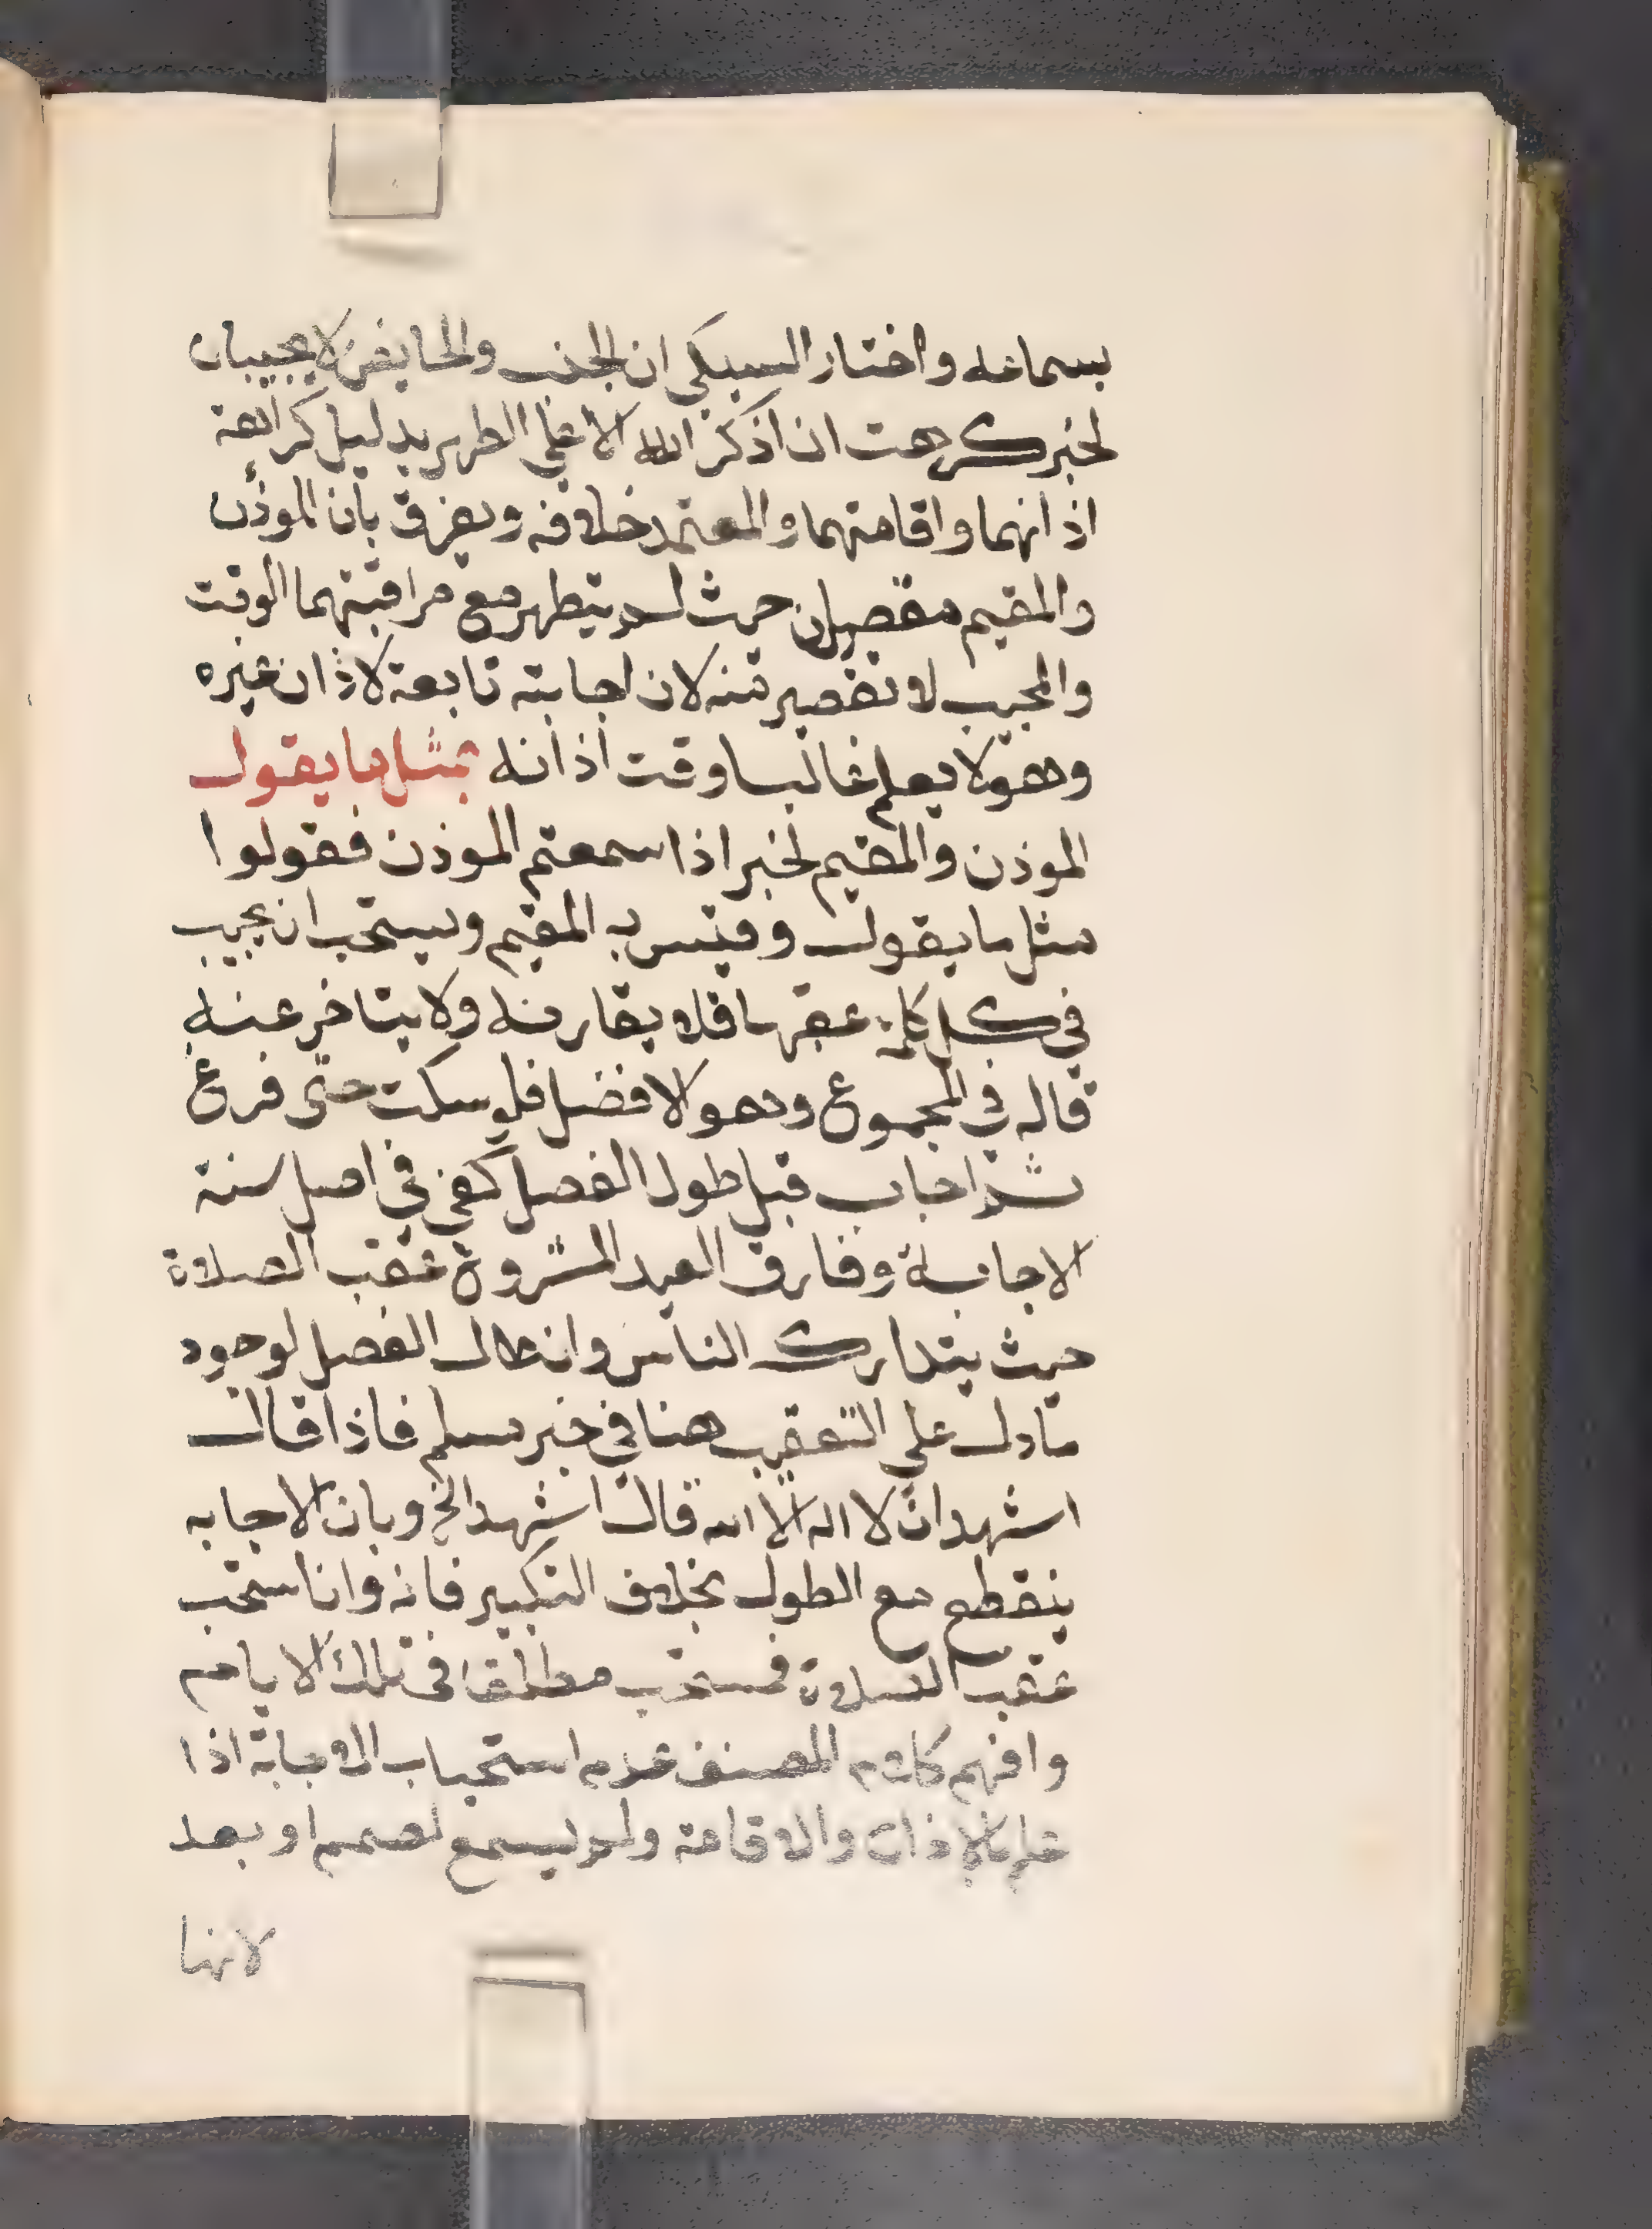 بسماعه واختار السبكي ان الجنب والحايض لا يجيبان
لخبر كرهت ان اذكر الله الا علي الطهر بدليل كراهة
اذانهما واقامتهما والمعتمد خلافه ويفرق بان الموذن
والمقيم مقصران حيث لم يتطهر مع مراقبتهما الوقت
والمجيب لا تقصير منه لان اجابته تابعة لاذان غيره
وهو لا يعلم غالبا وقت اذانه بمثل ما يقول
الموذن والمقيم لخبر اذا سمعتم الموذن فقولوا
مثل ما يقول وقيس به المقيم ويستحب ان يجيب
في كل كلمة عقبها فلا يقارنه ولا يتاخر عنه
قاله في المجموع وهو الافضل فلو سكت حتى فرغ
ثم اجاب قبل طول الفصل كفى في اصل سنة
الاجابة وفارق العيد المشروع عقب الصلاة
حيث يتدارك الناس وان طال الفصل لوجود
ما دل على التعقيب هنا في خبر مسلم فاذا قال
اشهد ان لا اله الا الله قال اشهد الخ وبان الاجابه
ينقطع مع الطول بخلاف التكبير فانه وان استحب
عقب الصلاة فمستحب مطلقا في تلك الايام
وافهم كلام المصنف عدم استحباب الاجابة اذا
علم بالاذان والاقامة ولم يسمع لصمم او بعد
لانها